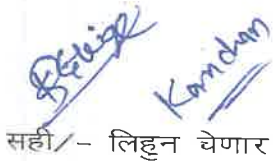 Kanchan
सही/- लिहुन घेणार